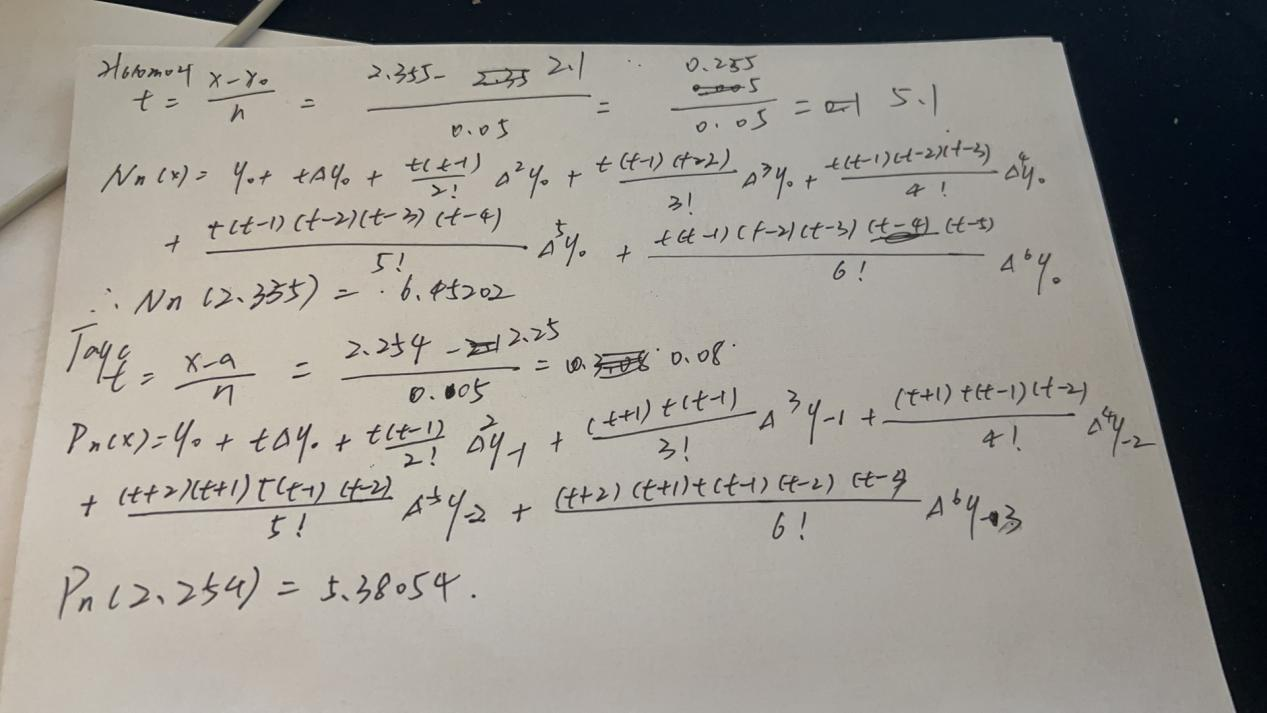 t = (x-x₀)/n = (2.355- 2.1)/0.05 = 0.255/0.05 = 5.1
Nn(x) = y₀ + tΔy₀ + t(t-1)/2! Δ²y₀ + t(t-1)(t-2)/3! Δ³y₀ + t(t-1)(t-2)(t-3)/4! Δ⁴y₀
+ t(t-1)(t-2)(t-3)(t-4)/5! Δ⁵y₀ + t(t-1)(t-2)(t-3)(t-4)(t-5)/6! Δ⁶y₀
∴ Nn(2.355) = 6.45202
t = (x-a)/n = (2.254 - 2.25)/0.05 = 0.08
Pn(x) = y₀ + tΔy₀ + t(t-1)/2! Δ²y₋₁ + (t+1)t(t-1)/3! Δ³y₋₁ + (t+1)t(t-1)(t-2)/4! Δ⁴y₋₂
+ (t+2)(t+1)t(t-1)(t-2)/5! Δ⁵y₋₂ + (t+2)(t+1)t(t-1)(t-2)(t-3)/6! Δ⁶y₋₃
Pn(2.254) = 5.38054.